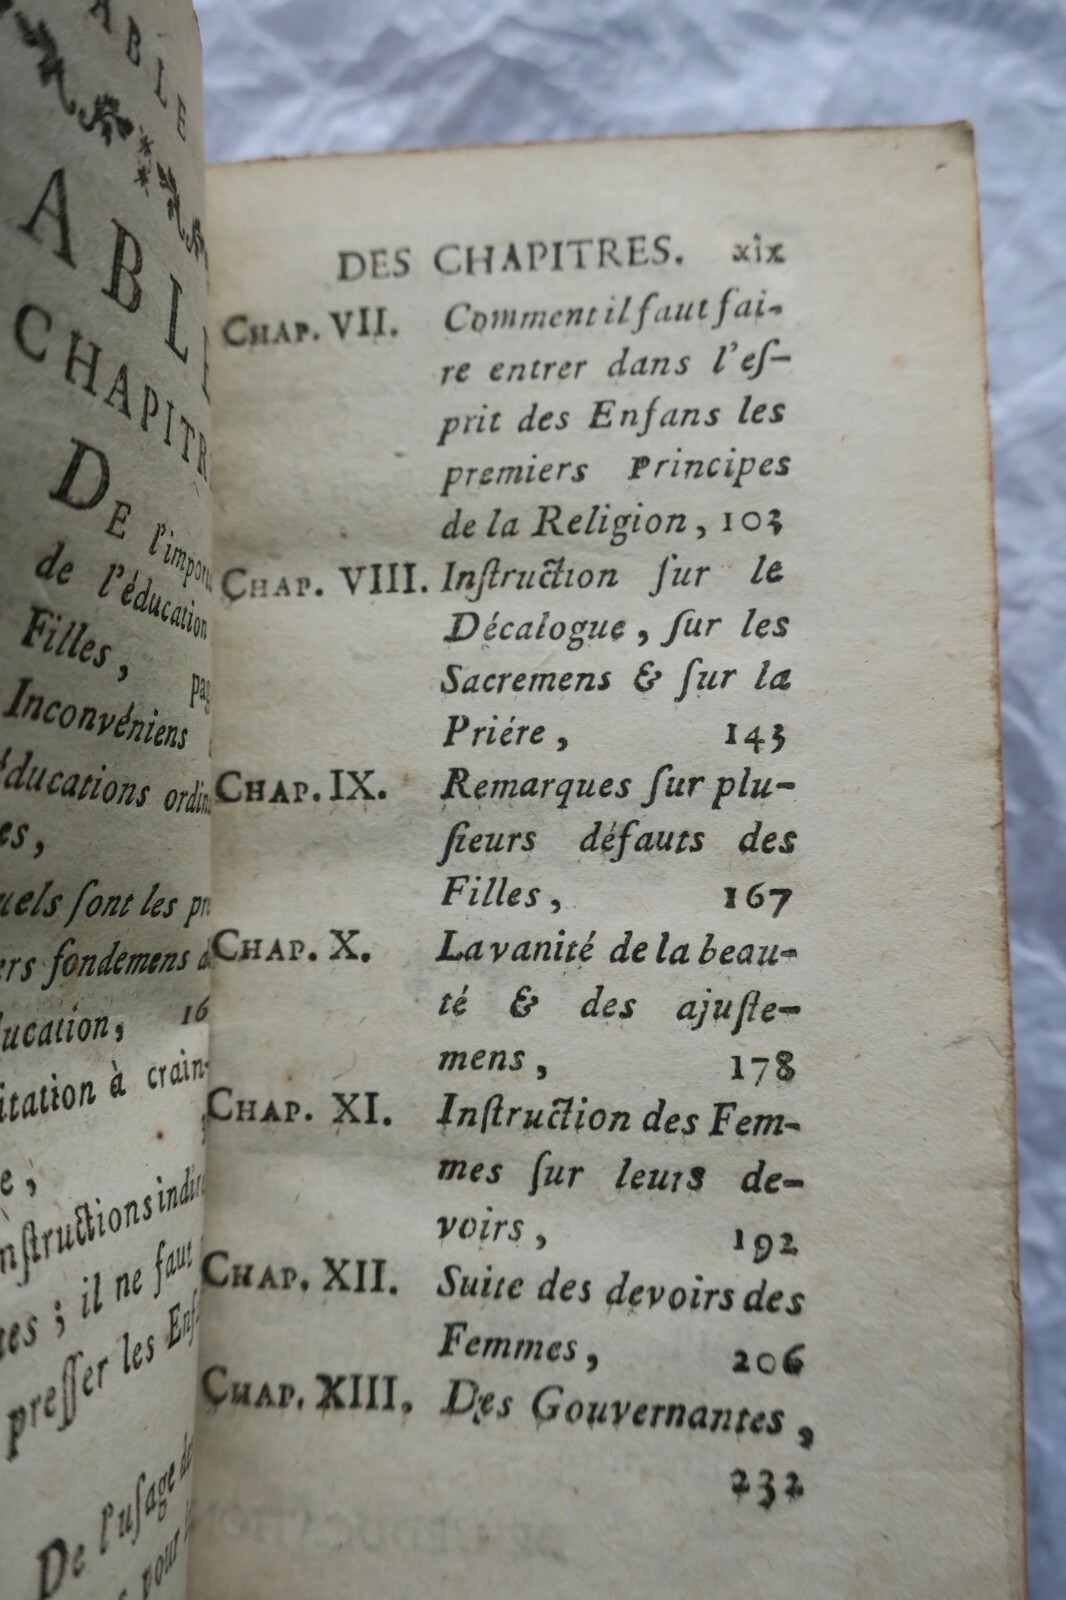 ABLE
ABL
CHAPITR
DE l'impor
de l'éducation
Filles, pag
Inconvéniens
éducations ordin
es,
uels ſont les pr
ers fondemens d
ucation, 16
itation à crain-
e,
nſtructions indir
es ; il ne faut
preſſer les Enf
De l'uſage des
pour
DES CHAPITRES. xix
CHAP. VII. Comment il faut fai-
re entrer dans l'eſ-
prit des Enfans les
premiers Principes
de la Religion, 103
CHAP. VIII. Inſtruction ſur le
Décalogue, ſur les
Sacremens & ſur la
Priére, 143
CHAP. IX. Remarques ſur plu-
ſieurs défauts des
Filles, 167
CHAP. X. La vanité de la beau-
té & des ajuſte-
mens, 178
CHAP. XI. Inſtruction des Fem-
mes ſur leurs de-
voirs, 192
CHAP. XII. Suite des devoirs des
Femmes, 206
CHAP. XIII. Des Gouvernantes,
232